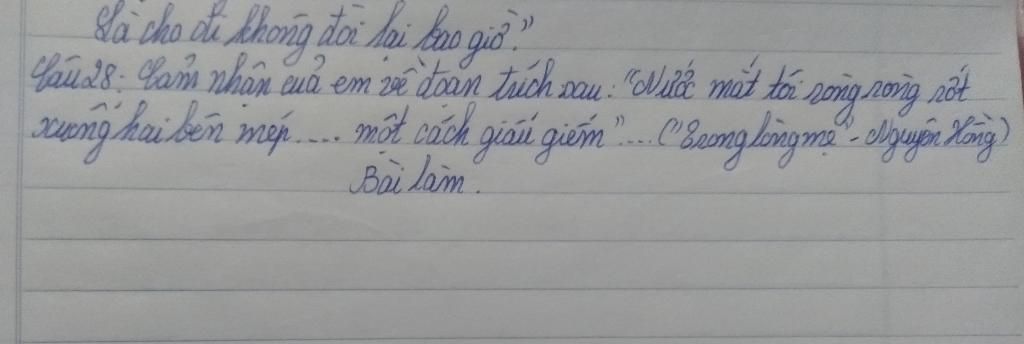 Là cho đi không đòi lại bao giờ."
Câu 28: Cảm nhận của em về đoạn trích sau: "Nước mắt tôi ròng ròng rớt
xuống hai bên mép.... một cách giấu giếm"... ("Trong lòng mẹ" - Nguyên Hồng)
Bài làm.